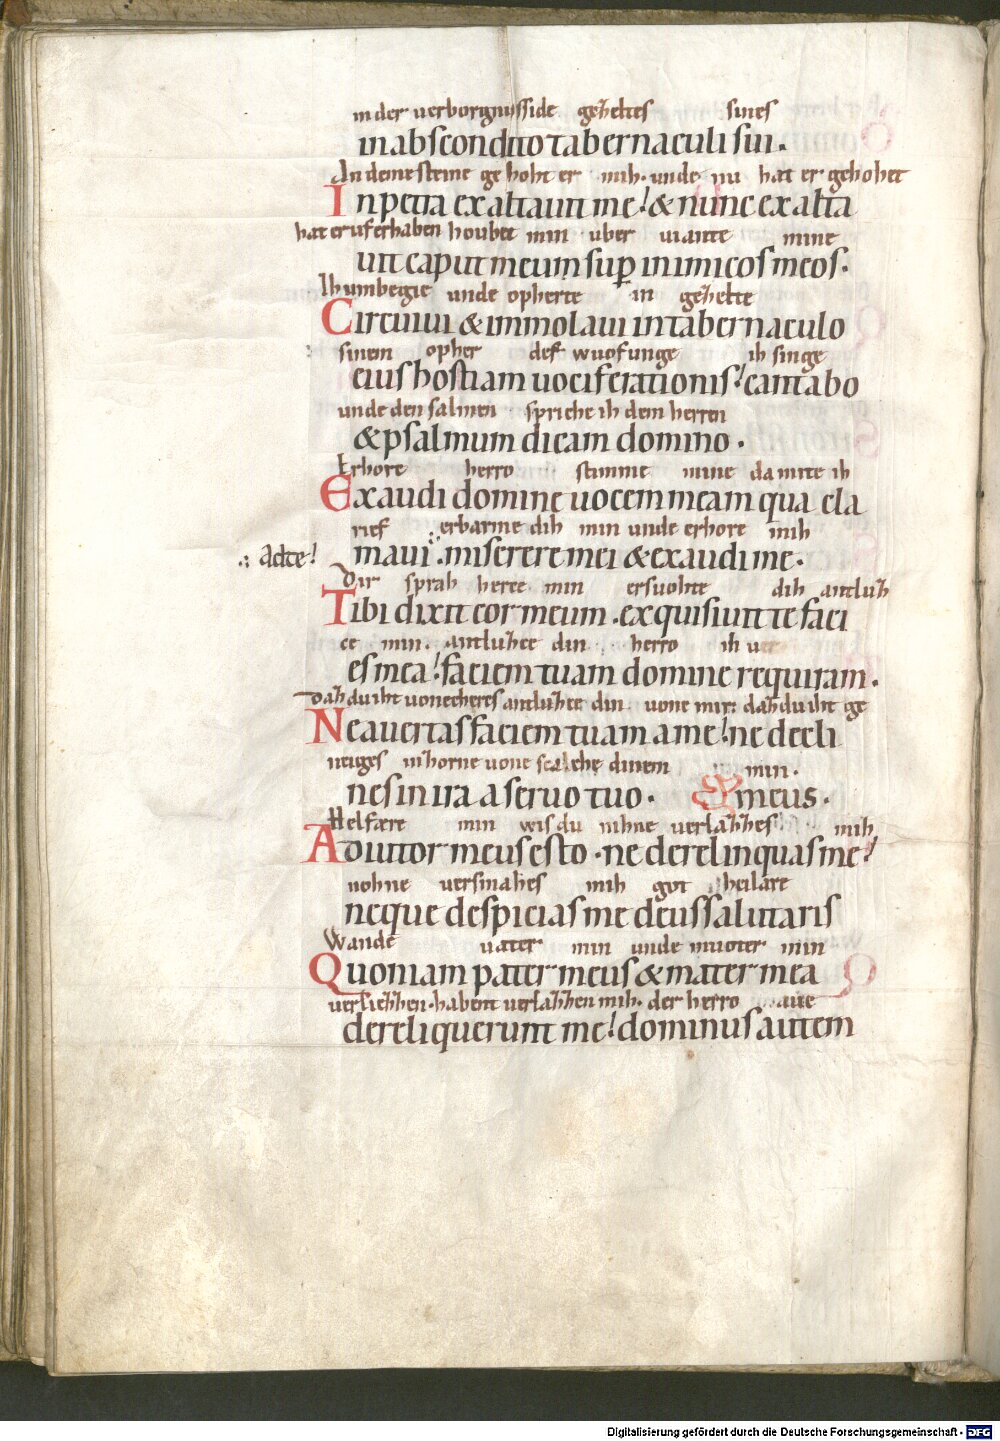 in der uerborgnusside geheltes sines
in abscondito tabernaculi sui.
An deme steine gehoht er mih. unde nu hat er gehohet
In petra exaltauit me! & nunc exalta
hat er uferhaben houbet min uber uiante mine
uit caput meum sup inimicos meos.
Ih umbegie unde opherte in gehelte
Circuiui & immolaui in tabernaculo
sinem opher def wuofunge ih singe
eius hostiam uociferationis! cantabo
unde den salmen spriche ih dem herren
& psalmum dicam domino.
Erhore herro stimme mine da mite ih
Exaudi domine uocem meam qua cla
rief erbarme dih min unde erhore mih
.: Adte! maui. miserere mei & exaudi me.
Dir sprah herce min ersuohte dih antluh
Tibi dixit cor meum. exquisiuit te faci
ce min. antluhce din herro ih
es mea! faciem tuam domine requiram.
Dah du iht uone cheres antluhte din uone mir: dah du iht ge
Ne auertas faciem tuam a me! ne decli
neiges in horne uone scalche dinem min.
nes in ira a seruo tuo. meus.
Helfære min wis du nihne uerlahhes mih
Adiutor meus esto. ne derelinquas me!
nohne uersmahes mih got heilare
neque despicias me deus salutaris
Wande uater min unde muoter min
Quoniam pater meus & mater mea
uerliehhen. habent uerlahhen mih. der herro aue
dereliquerunt me! dominus autem
Digitalisierung gefördert durch die Deutsche Forschungsgemeinschaft - DFG